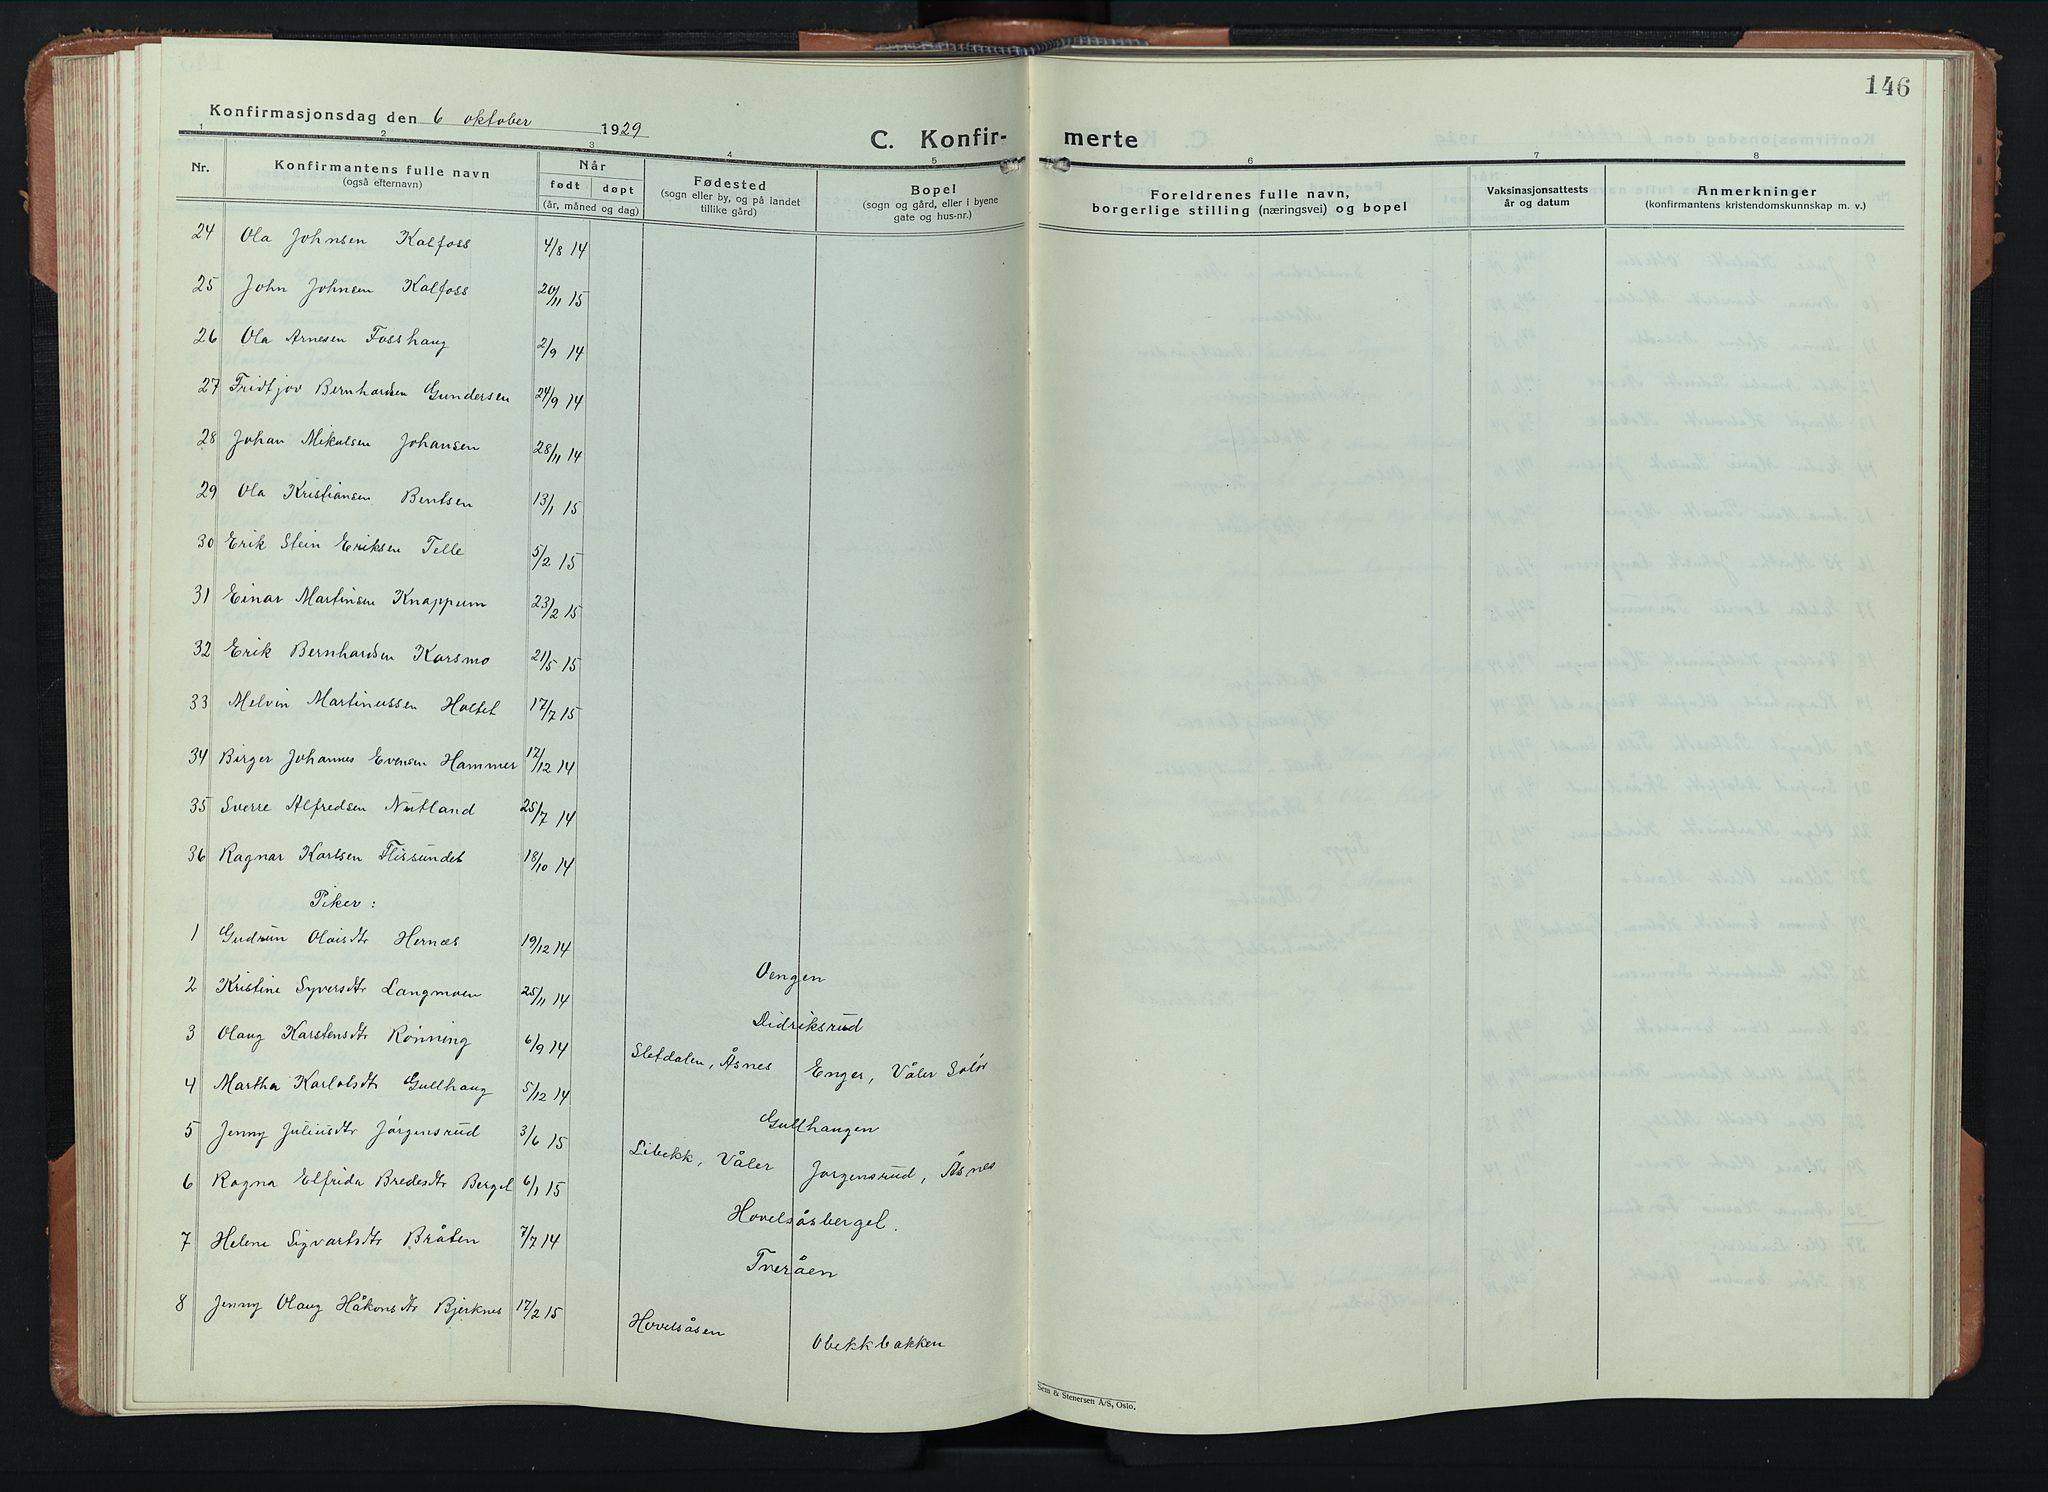 146
Konfirmasjonsdag den 6 oktober 1929
C. Konfir- merte
1 2 3 4 5 6 7 8
Nr. Konfirmantens fulle navn (også efternavn) Når født døpt (år, måned og dag) Fødested (sogn eller by, og på landet tillike gård) Bopel (sogn og gård, eller i byene gate og hus-nr.) Foreldrenes fulle navn, borgerlige stilling (næringsvei) og bopel Vaksinasjonsattests år og datum Anmerkninger (konfirmantens kristendomskunnskap m. v.)
24 Ola Johnsen Kalfoss 4/8 14
25 John Johnsen Kalfoss 20/11 15
26 Ola Arnesen Fosshaug 2/9 14
27 Fridtjov Bernhardsen Gundersen 24/9 14
28 Johan Mikalsen Johansen 28/11 14
29 Ola Kristiansen Bentsen 13/1 15
30 Erik Stein Eriksen Telle 5/2 15
31 Einar Martinsen Knappum 23/2 15
32 Erik Bernhardsen Karsmo 21/5 15
33 Melvin Martinussen Holtet 17/7 15
34 Birger Johannes Evensen Hammer 17/12 14
35 Sverre Alfredsen Nutland 25/7 14
36 Ragnar Karlsen Flissundet 18/10 14
Piker:
1 Gudrun Olaisdtr Hernæs 19/12 14
Oengen
2 Kristine Syversdtr Langmoen 25/11 14
Didriksrud
3 Olaug Karstensdtr Rønning 6/9 14 Sletdalen, Åsnes Enger, Våler Solør
4 Martha Karlotsdtr Gullhaug 5/12 14
Gullhaugen
5 Jenny Juliusdtr Jørgensrud 3/6 15 Libekk, Våler Jørgensrud, Åsnes
6 Ragna Elfrida Bredesdtr Bergel 6/1 15
Hovelsåsbergel.
7 Helene Sigvartsdtr Bråten 7/7 14
Tveråen
8 Jenny Olaug Håkonsdtr Bjerknes 17/2 15 Hovelsåsen Obekkbakken
Sem & Stenersen A/S, Oslo.